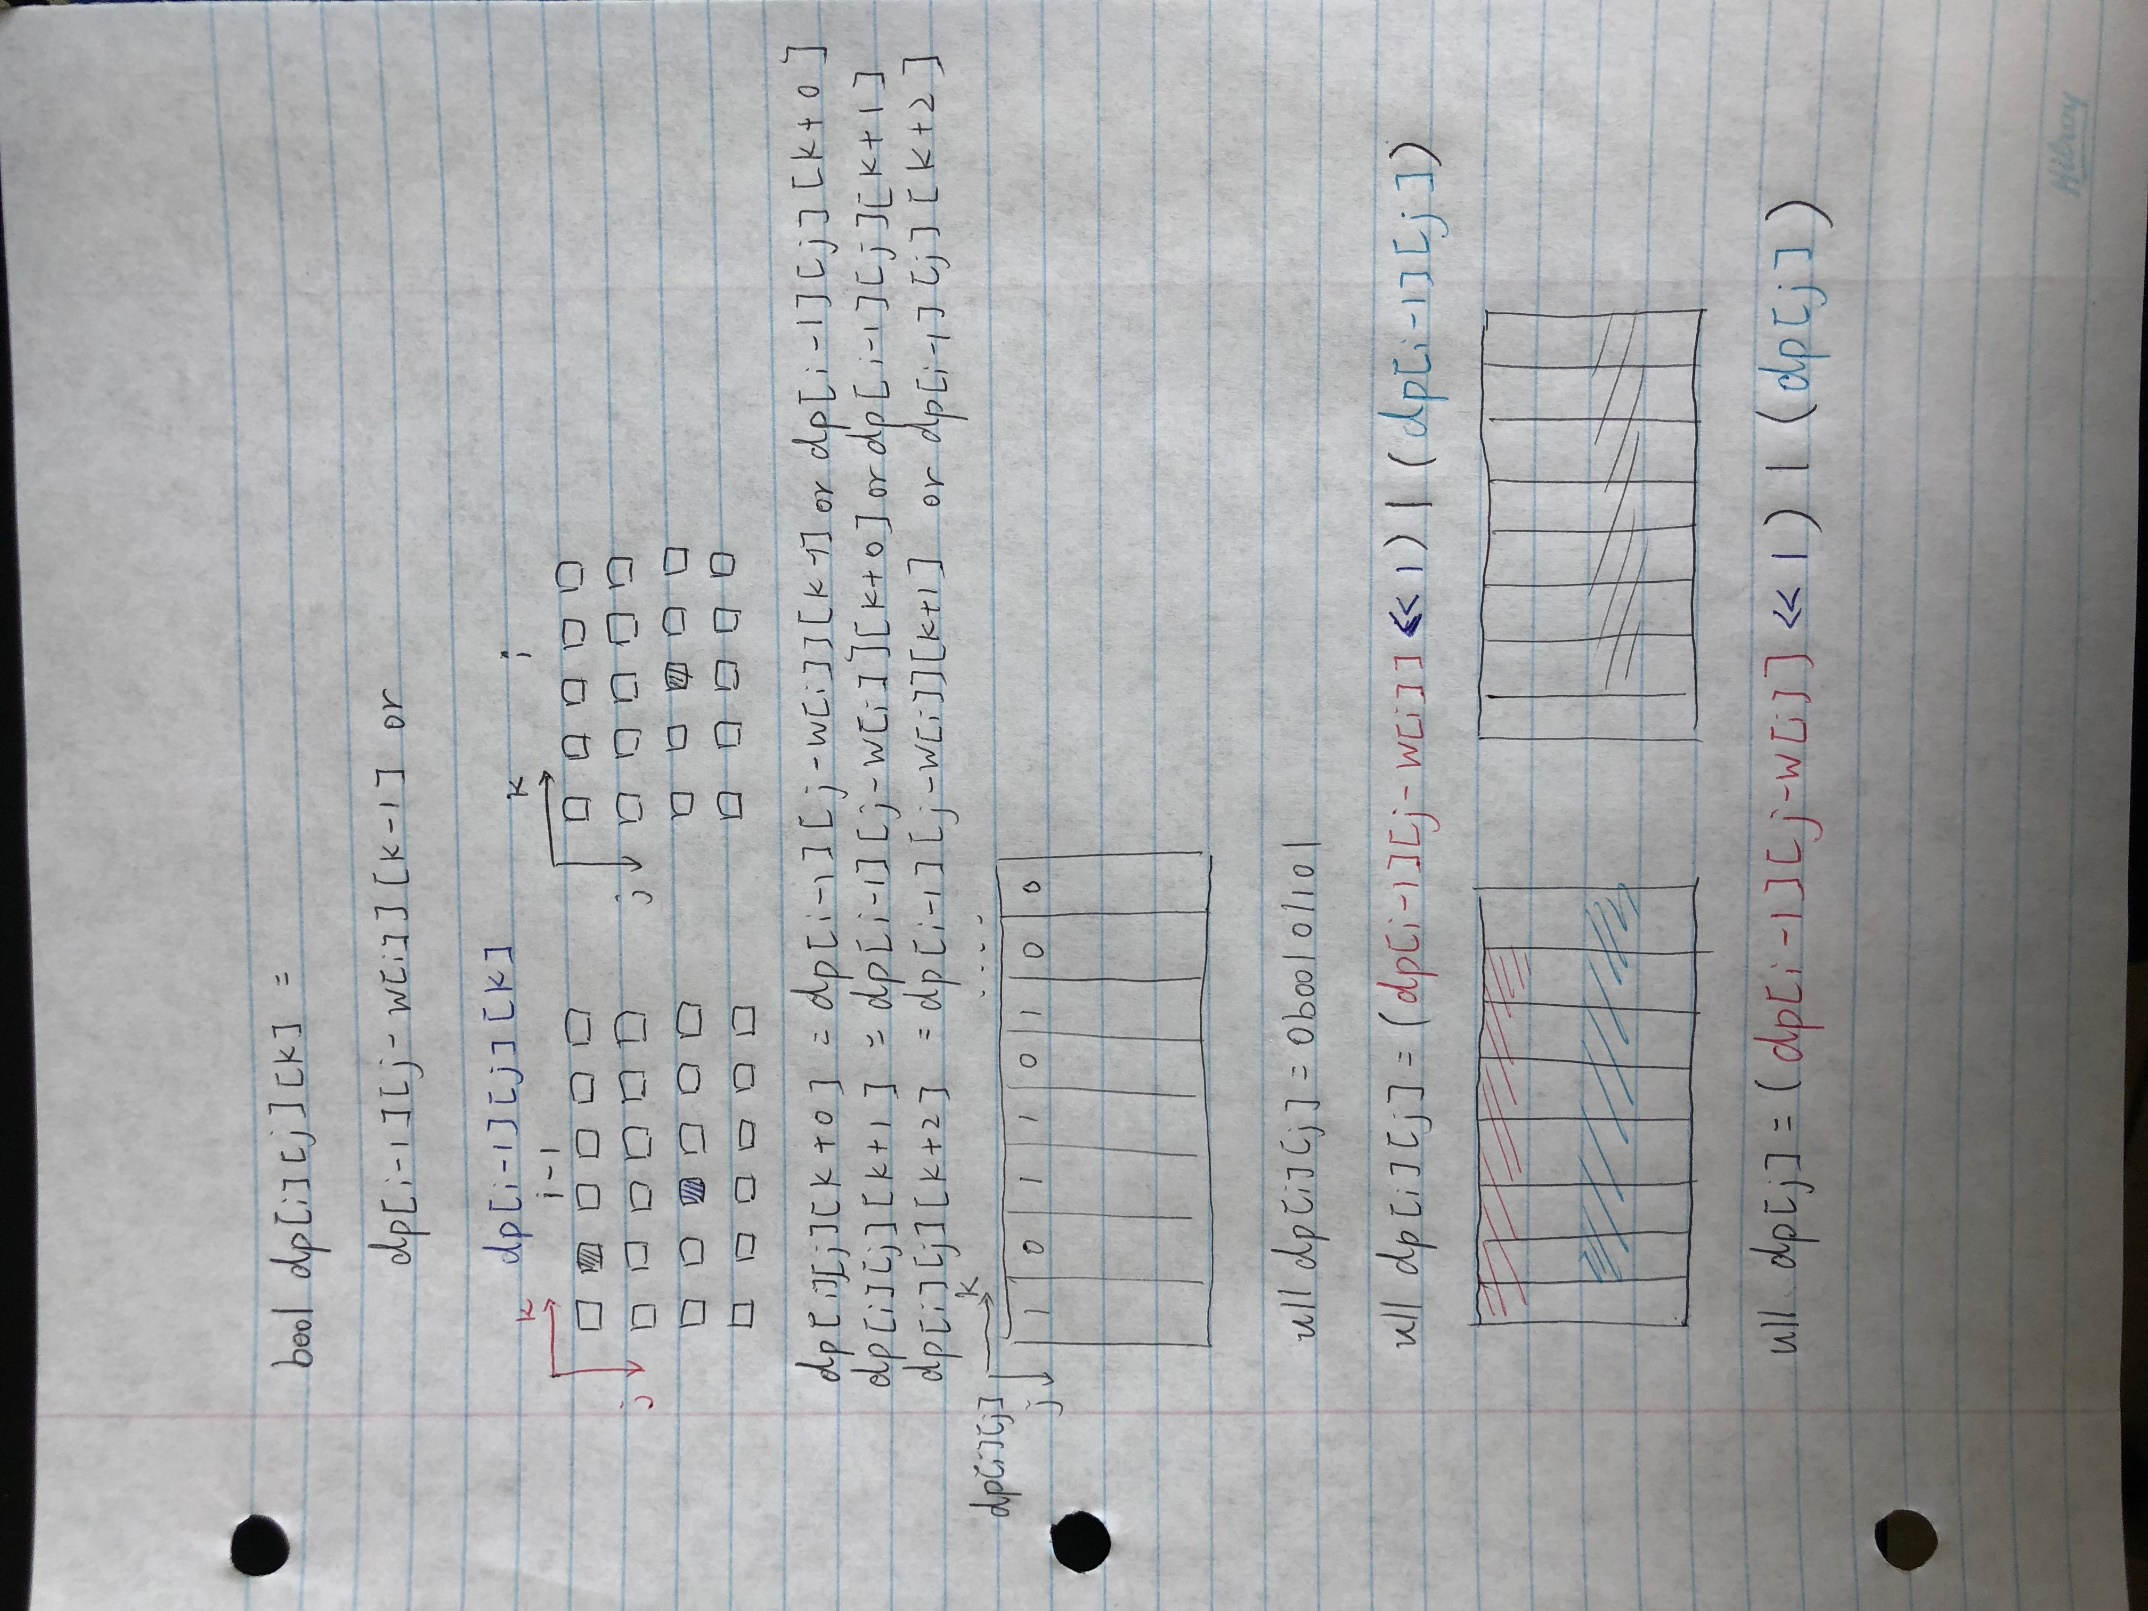 bool dp[i][j][k] =
dp[i-1][j-w[i]][k-1] or
dp[i-1][j][k]
k i-1 k i
j j
dp[i][j][k+0] = dp[i-1][j-w[i]][k-1] or dp[i-1][j][k+0]
dp[i][j][k+1] = dp[i-1][j-w[i]][k+0] or dp[i-1][j][k+1]
dp[i][j][k+2] = dp[i-1][j-w[i]][k+1] or dp[i-1][j][k+2]
dp[i][j] k ....
j 1 0 1 1 0 1 0 0
ull dp[i][j] = 0b00101101
ull dp[i][j] = (dp[i-1][j-w[i]] << 1) | (dp[i-1][j])
ull dp[j] = (dp[i-1][j-w[i]] << 1) | (dp[j])
Hilroy